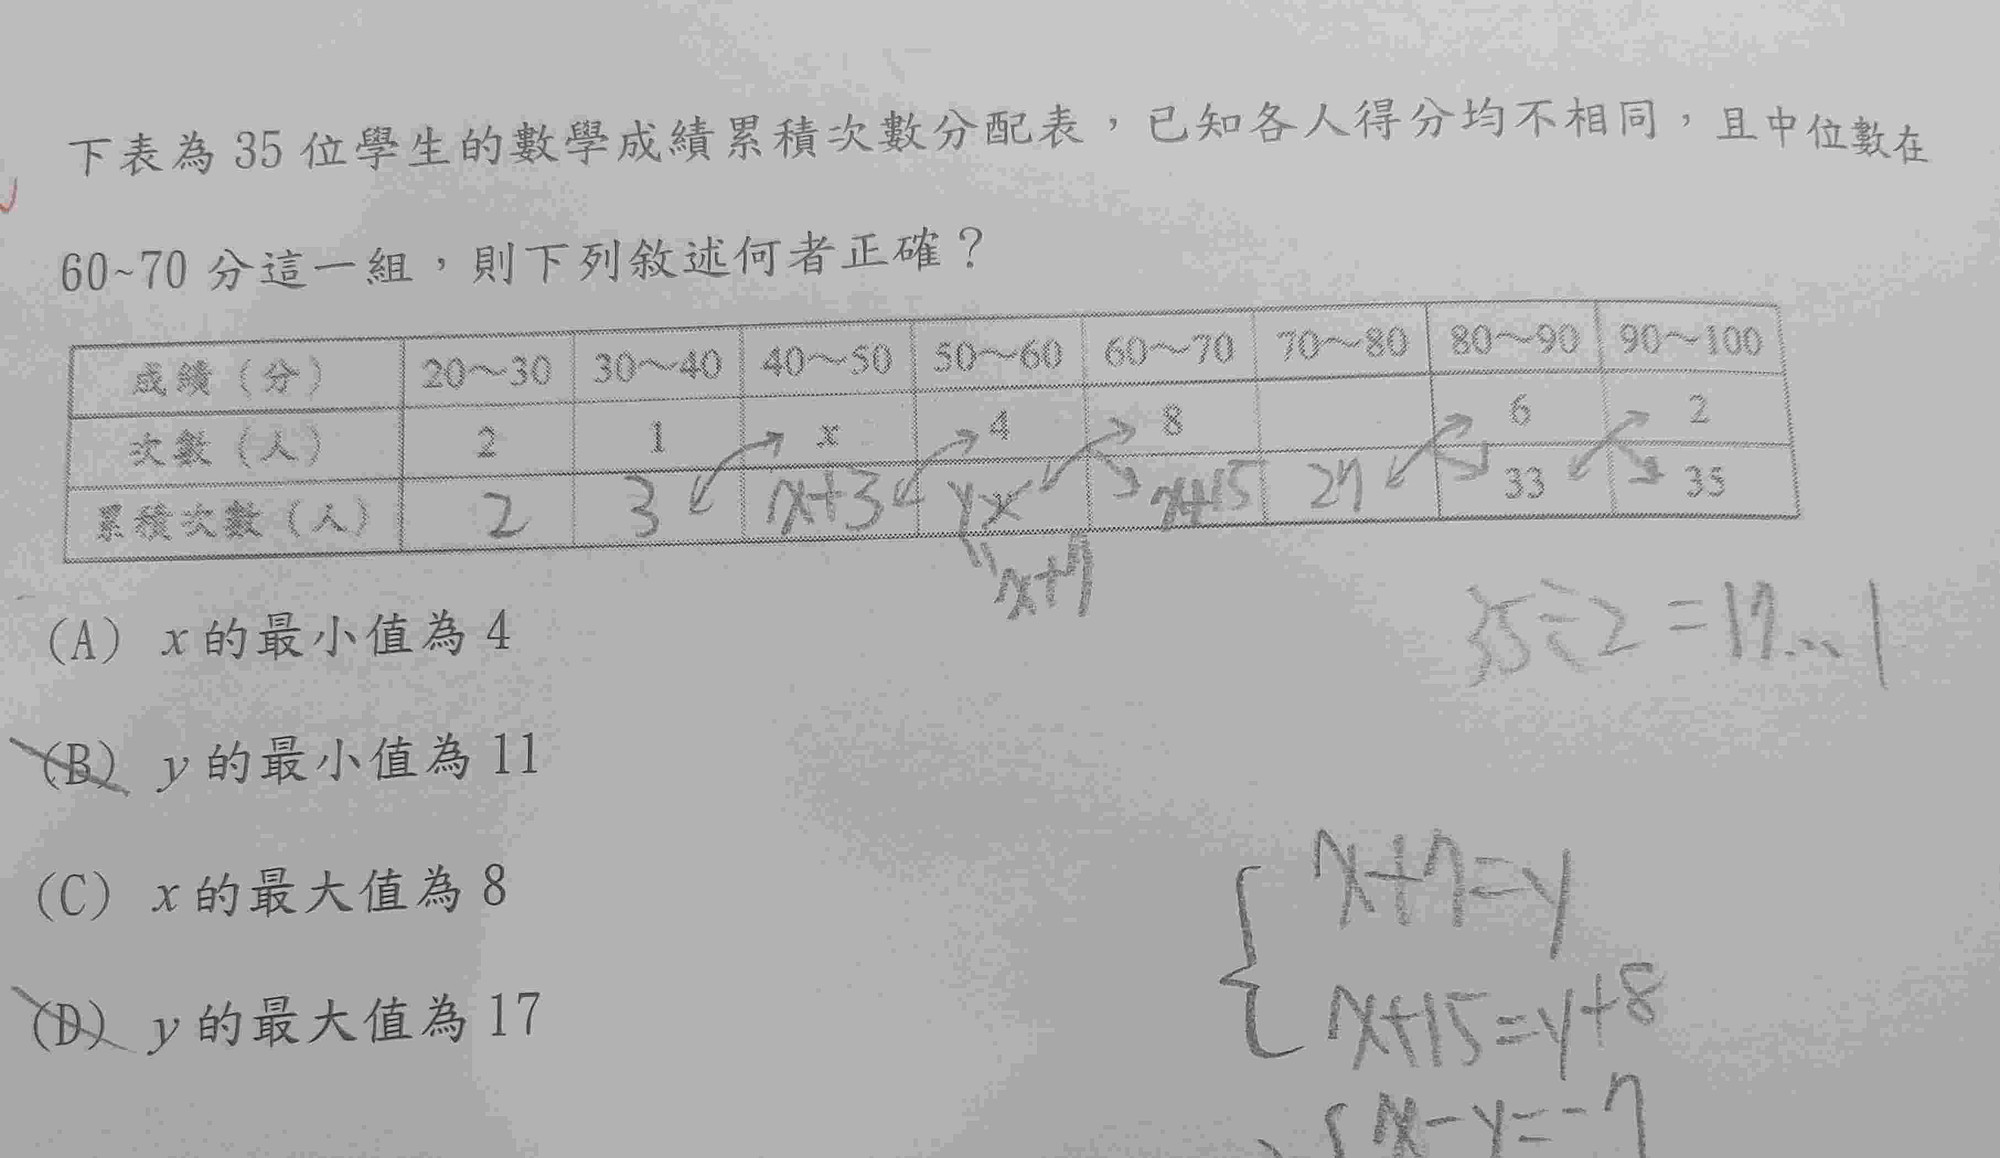 下表為 35 位學生的數學成績累積次數分配表，已知各人得分均不相同，且中位數在
60~70 分這一組，則下列敘述何者正確？
成績（分） 20～30 30～40 40～50 50～60 60～70 70～80 80～90 90～100
次數（人） 2 1 x 4 8 6 2
累積次數（人） 2 3 x+3 y x+15 27 33 35
x+7
35÷2=17…1
(A) x 的最小值為 4
(B) y 的最小值為 11
(C) x 的最大值為 8
(D) y 的最大值為 17
x+7=y
x+15=y+8
x-y=-7